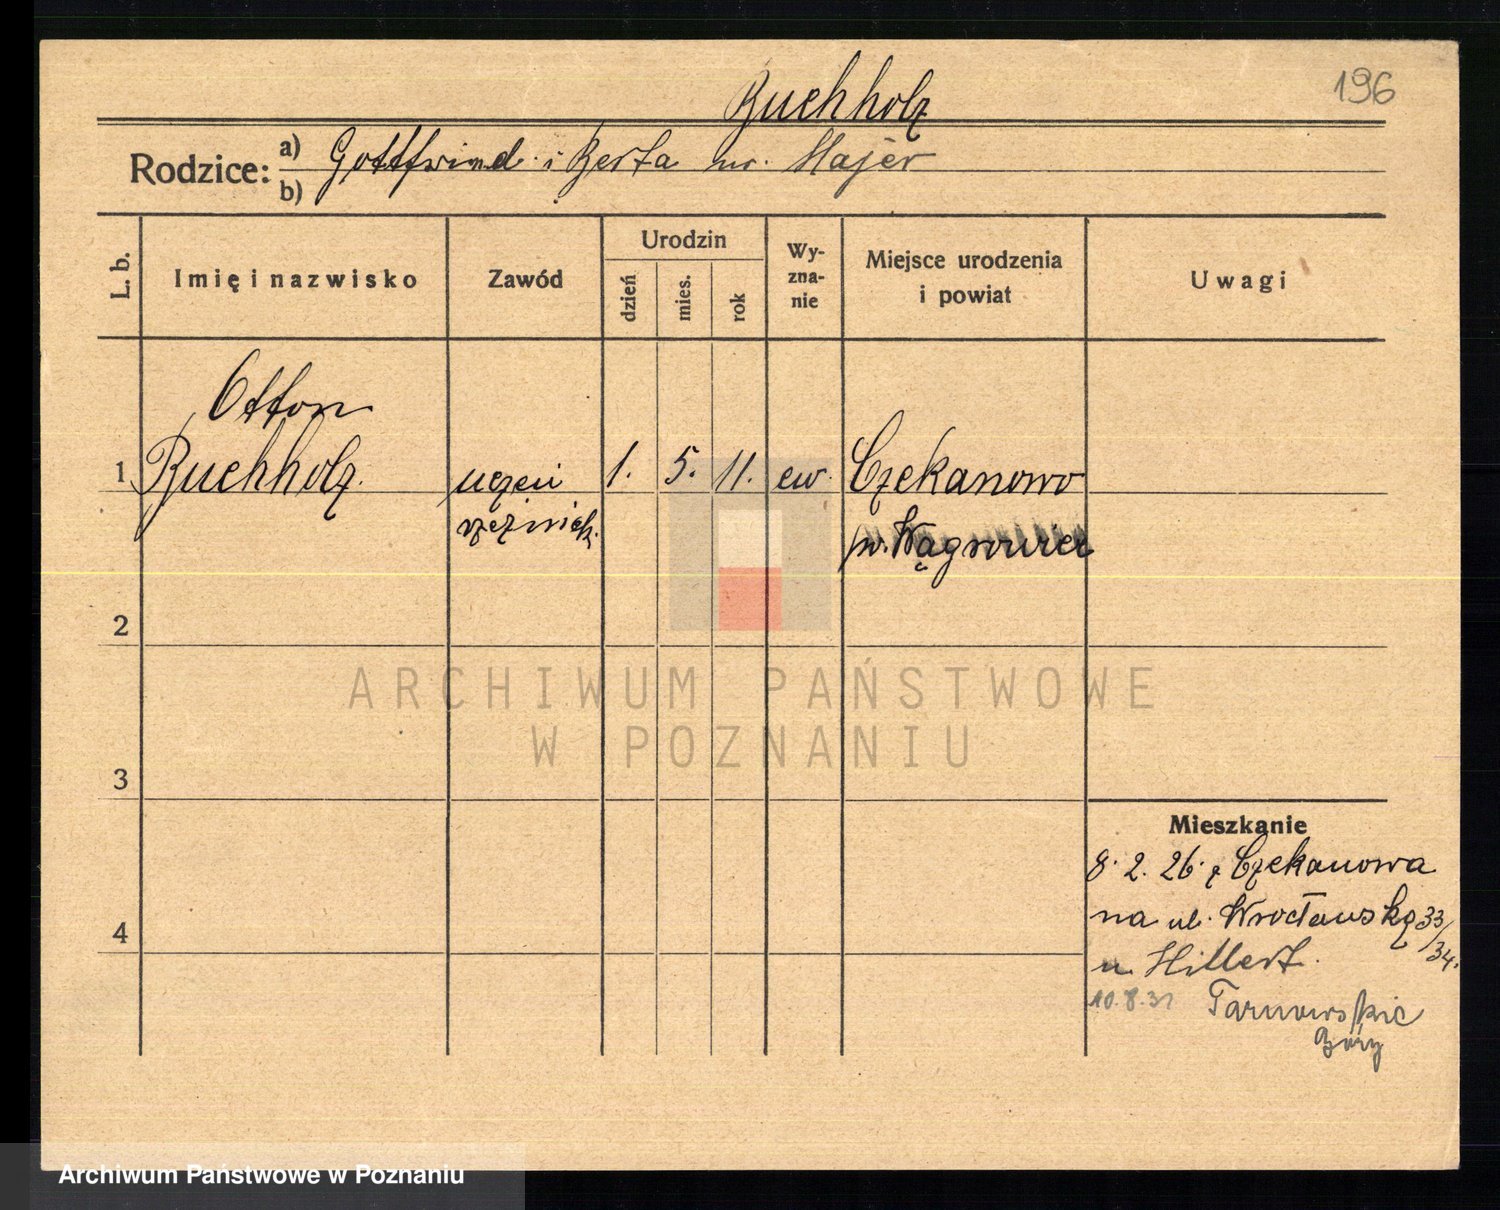 196
Buchholz
Rodzice: a) Gottfrind i Berta ur. Majer
b)
L. b. Imię i nazwisko Zawód Urodzin dzień mies. rok Wyznanie Miejsce urodzenia i powiat Uwagi
Otton
1 Buchholz uczeń 1. 5. 11. ew. Czekanowo
rzeźnick. pw. Wągrowiec
2
ARCHIWUM PAŃSTWOWE
W POZNANIU
3
Mieszkanie
8. 2. 26. z Czekanowa
4
na ul. Wrocławską 33/34.
u Hillert.
10.8.31 Tarnowskie
Góry
Archiwum Państwowe w Poznaniu